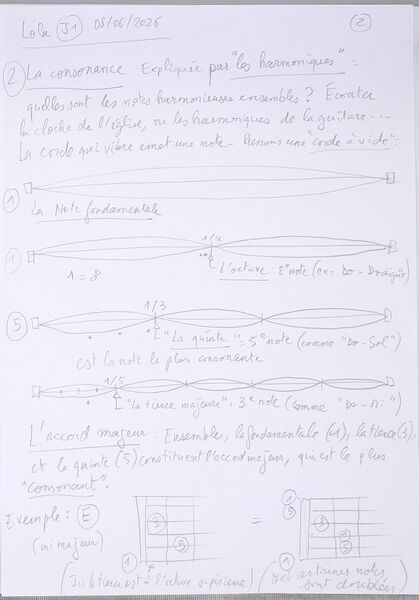 Lola J1 08/06/2026 2
2 La consonance Expliquée par "les harmoniques" =
quelles sont les notes harmonieuses ensembles ? Écouter
la cloche de l'église, ou les harmoniques de la guitare ...
La corde qui vibre emet une note - Prenons une "corde à vide" :
1
La Note fondamentale
1/2
1
1 = 8 L'octave : 8e note (ex = Do - Do aigüe)
1/3
5
"La quinte" = 5e note (comme "Do - Sol")
est la note la plus consonante
1/5
"La tierce majeure" = 3e note (comme "Do - Mi")
L'accord majeur. Ensemble, la fondamentale (1), la tierce (3),
et la quinte (5) constituent l'accord majeur, qui est le plus
"consonant".
Exemple : E 3 5 = 1 5 3 5
(mi majeur) 1 1
(Ici la tierce est à l'octave supérieure) (Ici certaines notes
sont doublées)